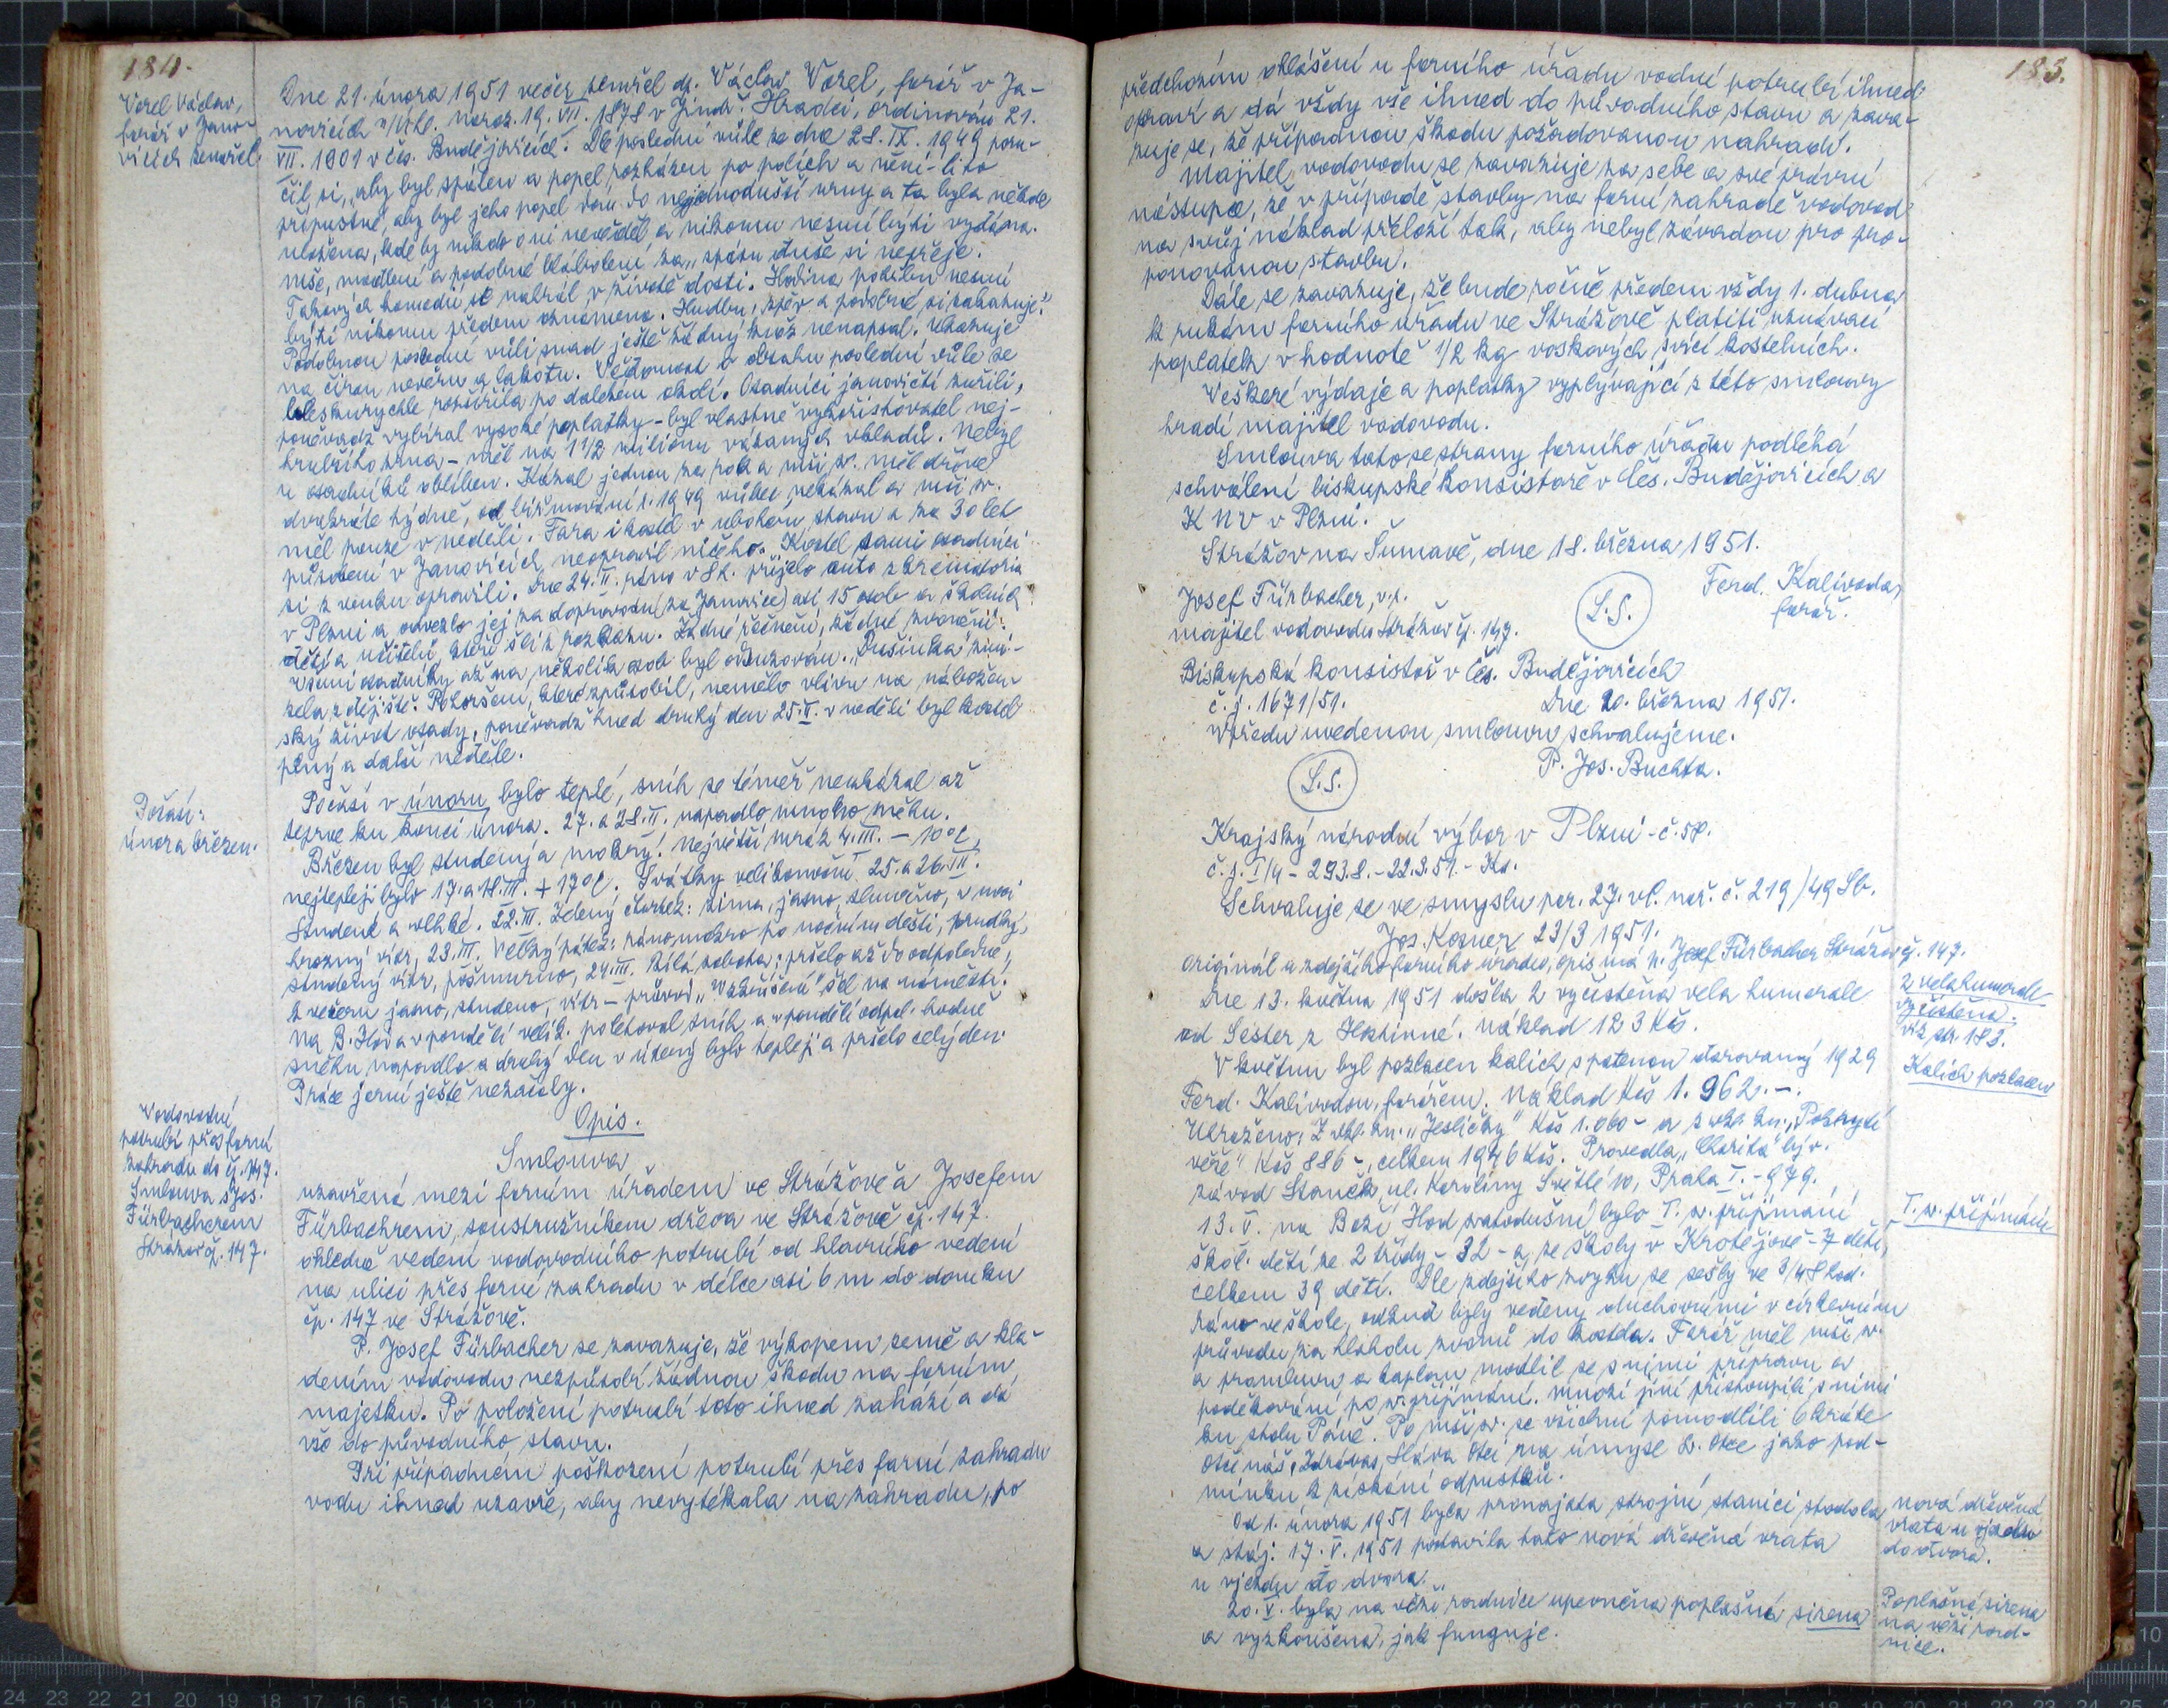 184.
Vorel Václav,
farář v Jano-
vicích zemřel.
Dne 21. února 1951 večer zemřel dp. Václav Vorel, farář v Ja-
novicích n/Úhl. naroz. 19. VII. 1878 v Jindř. Hradci, ordinován 21.
VII. 1901 v Čes. Budějovicích. Dle poslední vůle ze dne 28. IX. 1949 poru-
čil si, "aby byl spálen a popel rozházen po polích a není-li to
přípustné, aby byl jeho popel dán do nejjednodušší urny a ta byla někde
uložena, kde by nikdo o ní nevěděl a nikomu nesmí býti vydána.
Mše, modlení a podobné blábolení za "spásu duše si nepřeje.
Takových komedií se nahrál v životě dosti. Hodina pohřbu nesmí
býti nikomu předem oznámena. Hudbu, zpěv a podobné si zakazuje."
Podobnou poslední vůli snad ještě žádný kněz nenapsal. Ukazuje
na čirou nevěru a lakotu. Vědomost o obsahu poslední vůle se
bleskurychle rozšířila po dalekém okolí. Osadníci janovičtí zuřili,
poněvadž vybíral vysoké poplatky - byl vlastně vykořisťovatel nej-
hrubšího zrna - měl na 1 1/2 miliónu vázaných vkladů. Nebyl
u osadníků oblíben. Kázal jednou za rok a mši sv. měl dříve
dvakráte týdně, od biřmování r. 1949 vůbec nekázal a mši sv.
měl pouze v neděli. Fara i kostel v ubohém stavu a za 30 let
působení v Janovicích neopravil ničeho. Kostel sami osadníci
si z venku opravili. Dne 24. II. ráno v 8 h. přijelo auto z krematoria
v Plzni a odvezlo jej za doprovodu (za Janovice) asi 15 osob a školních
dětí a učitelů, kteří šli z rozkazu. Žádné řečnění, žádné zvonění.
Všemi osadníky až na několik osob byl odsuzován. "Dušinka" zmi-
zela z dějiště. Pohoršení, které způsobil, nemělo vlivu na nábožen-
ský život osady, poněvadž hned druhý den 25. II. v neděli byl kostel
plný a další neděle.
Počasí:
února březen.
Počasí v únoru bylo teplé, sníh se téměř neukázal až
teprve ku konci února. 27. a 28. II. napadlo mnoho sněhu.
Březen byl studený a mokrý. Největší mráz 4. III. - 10°C,
nejtepleji bylo 17. a 18. III. + 17°C. Svátky velikonoční 25. a 26. III.
Studené a vlhké. 22. III. Zelený čtvrtek: zima, jasno, slunečno, v noci
hrozný vítr, 23. III. Velký pátek: ráno mokro po nočním dešti, prudký,
studený vítr, pošmurno, 24. III. Bílá sobota: pršelo až do odpoledne,
k večeru jasno, studeno, vítr - průvod "Vzkříšení" šel na náměstí.
Na B. Hod a v pondělí velik. poletoval sníh a v pondělí odpol. hodně
sněhu napadlo a druhý den v úterý bylo tepleji a pršelo celý den.
Práce jarní ještě nezačaly.
Vodovodní
potrubí přes farní
zahradu do čp. 147.
Smlouva s Jos.
Fürbacherem
Strážov čp. 147.
Opis.
Smlouva
uzavřená mezi farním úřadem ve Strážově a Josefem
Fürbachrem, soustružníkem dřeva ve Strážově čp. 147.
ohledně vedení vodovodního potrubí od hlavního vedení
na ulici přes farní zahradu v délce asi 6 m do domku
čp. 147 ve Strážově.
P. Josef Fürbacher se zavazuje, že výkopem země a kla-
dením vodovodu nezpůsobí žádnou škodu na farním
majetku. Po položení potrubí toto ihned zahází a dá
vše do původního stavu.
Při případném poškození potrubí přes farní zahradu
vodu ihned uzavře, aby nevytékala na zahradu, po
185.
předchozím ohlášení u farního úřadu vodní potrubí ihned
opraví a dá vždy vše ihned do původního stavu a zava-
zuje se, že případnou škodu požadovanou nahradí.
Majitel vodovodu se zavazuje za sebe a své právní
nástupce, že v případě stavby na farní zahradě vodovod
na svůj náklad přeloží tak, aby nebyl závadou pro pro-
ponovanou stavbu.
Dále se zavazuje, že bude ročně předem vždy 1. dubna
k rukám farního úřadu ve Strážově platiti uznávací
poplatek v hodnotě 1/2 kg voskových svící kostelních.
Veškeré výdaje a poplatky vyplývající z této smlouvy
hradí majitel vodovodu.
Smlouva tato se strany farního úřadu podléhá
schválení biskupské konsistoře v Čes. Budějovicích a
KNV v Plzni.
Strážov na Šumavě, dne 18. března 1951.
Josef Fürbacher, v.r.
majitel vodovodu Strážov čp. 147.
L.S.
Ferd. Kalivoda,
farář.
Biskupská konsistoř v Čes. Budějovicích
č.j. 1671/51.
Dne 20. března 1951.
Vpředu uvedenou smlouvu schvalujeme.
L.S.
P. Jos. Buchta.
Krajský národní výbor v Plzni - č. 58.
č.j. I/4 - 293.8. - 22.3.51. - Ks.
Schvaluje se ve smyslu par. 27. vl. nař. č. 219/49 Sb.
Jos. Kosner 23/3 1951.
Originál u zdejšího farního úřadu, opis má p. Josef Fürbacher Strážov čp. 147.
Dne 13. května 1951 došla 2 vyčistěna vela humerale
od Sester z Hostinné. Náklad 123 Kčs.
2 vela humerale
vyčistěna.
viz str. 183.
V květnu byl pozlacen kalich s patenou darovaný 1929
Ferd. Kalivodou, farářem. Náklad Kčs 1.962.-.
Kalich pozlacen
Uhraženo: Z vkl. kn. "Jesličky" Kčs 1.060- a z vkl. kn. "Pokrytí
věže" Kčs 886-, celkem 1946 Kčs. Provedla "Charita" býv.
závod Staněk, ul. Karoliny Světlé 10, Praha I. - 979.
13. V. na Boží Hod svatodušní bylo I. sv. přijímání
I. sv. přijímání
škol. dětí ze 2 třídy - 32 - a ze školy v Krotějově - 7 dětí,
celkem 39 dětí. Dle zdejšího zvyku se sešly ve 3/4 8 hod.
ráno ve škole, odkud byly vedeny duchovními v církevním
průvodu za hlaholu zvonů do kostela. Farář měl mši sv.
a promluvu a kaplan modlil se s nimi přípravu a
poděkování po sv. přijímání. Mnozí jiní přistoupili s nimi
ku stolu Páně. Po mši sv. se všichni pomodlili 6 kráte
Otče náš, Zdrávas, Sláva Otci na úmysl sv. Otce jako pod-
mínku k získání odpustků.
Od 1. února 1951 byla pronajata strojní stanici stodola
a stáj. 17. V. 1951 postavila tato nová dřevěná vrata
u vjezdu do dvora.
nová dřevěná
vrata u vjezdu
do dvora.
20. V. byla na věži radnice upevněna poplašná sirena
a vyzkoušena, jak funguje.
Poplašná sirena
na věži rad-
nice.